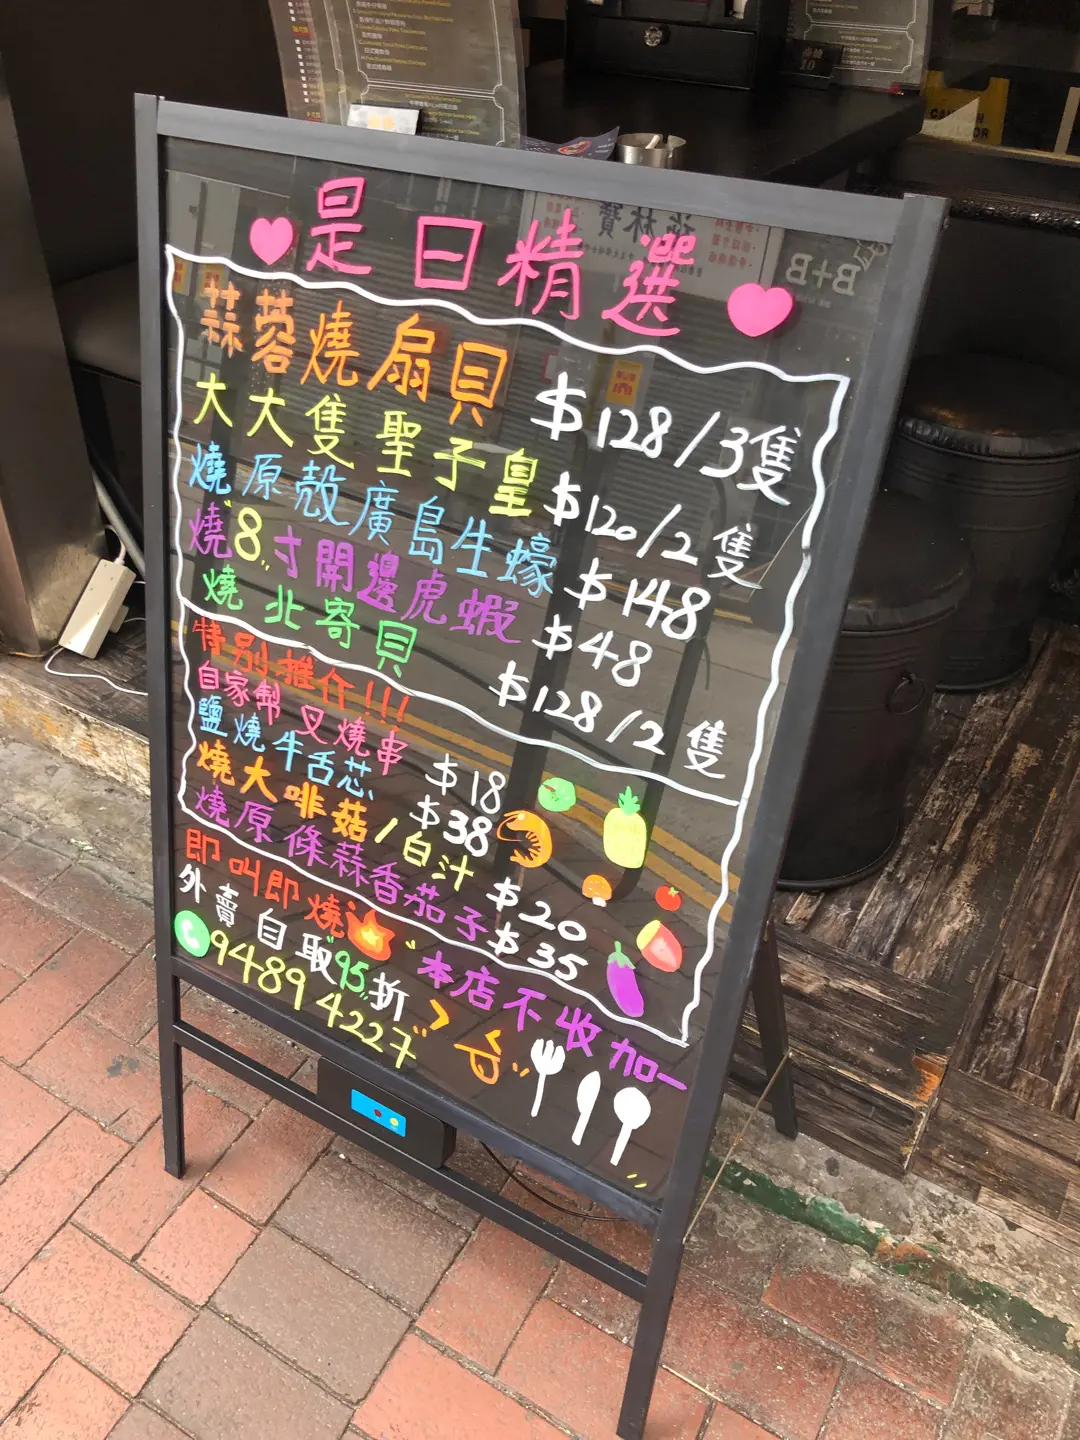 是日精選
蒜蓉燒扇貝 $128/3隻
大大隻聖子皇 $120/2隻
燒原殼廣島生蠔 $148
燒"8"寸開邊虎蝦 $48
燒北寄貝 $128/2隻
特別推介!!!
自家制叉燒串 $18
鹽燒牛舌芯 $38
燒大啡菇/白汁 $20
燒原條蒜香茄子 $35
即叫即燒
"本店不收加一"
外賣自取"95"折
94894227
B+B